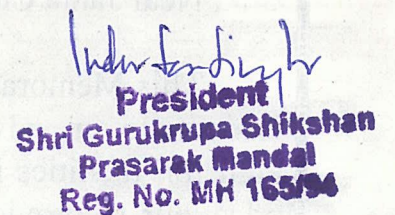 President
Shri Gurukrupa Shikshan
Prasarak Mandal
Reg. No. MH 165/94